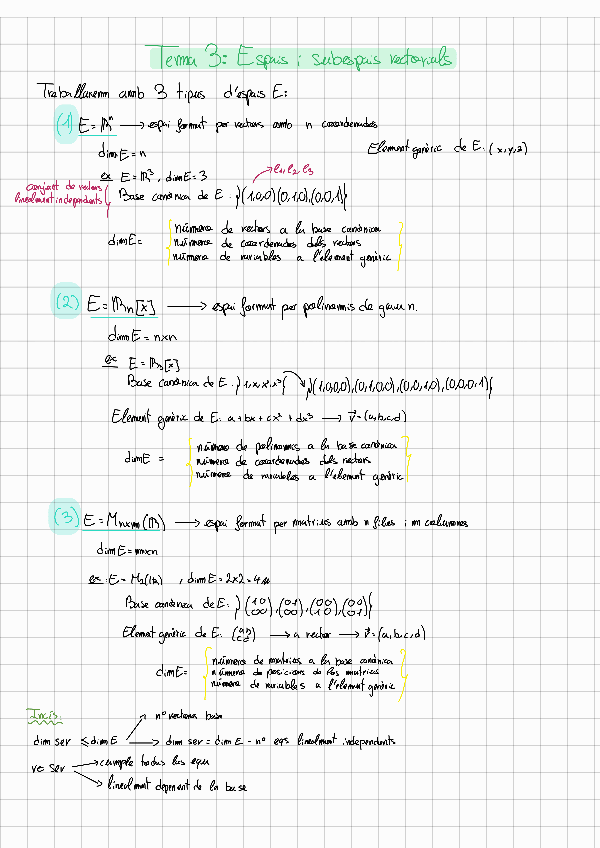 Tema 3: Espais i subespais vectorials
Treballarem amb 3 tipus d'espais E:
(1) E = ℝⁿ → espai format per vectors amb n coordenades
dim E = n
Element genèric de E: (x, y, z)
ex E = ℝ³, dim E = 3
e₁, e₂, e₃
conjunt de vectors linealment independents
Base canònica de E: {(1,0,0)(0,1,0),(0,0,1)}
dim E =
número de vectors a la base canònica
número de coordenades dels vectors
número de variables a l'element genèric
(2) E = ℝn[x] → espai format per polinomis de grau n.
dim E = n×n
ex E = ℝ₃[x]
Base canònica de E: {1, x, x², x³} {(1,0,0,0),(0,1,0,0),(0,0,1,0),(0,0,0,1)}
Element genèric de E: a + bx + cx² + dx³ → v⃗ = (a,b,c,d)
dim E =
número de polinomis a la base canònica
número de coordenades dels vectors
número de variables a l'element genèric
(3) E = Mn×m(ℝ) → espai format per matrius amb n files i m columnes
dim E = m×n
ex: E = M₂(ℝ), dim E = 2×2 = 4
Base canònica de E: {(1 0 / 0 0), (0 1 / 0 0), (0 0 / 1 0), (0 0 / 0 1)}
Element genèric de E: (a b / c d) → a vector → v⃗ = (a,b,c,d)
dim E =
número de matrius a la base canònica
número de posicions de les matrius
número de variables a l'element genèric
Incís:
nº vectors base
dim sev ≤ dim E → dim sev = dim E - nº eqs linealment independents
v∈ sev → cumple todas las equ
linealment depenent de la base